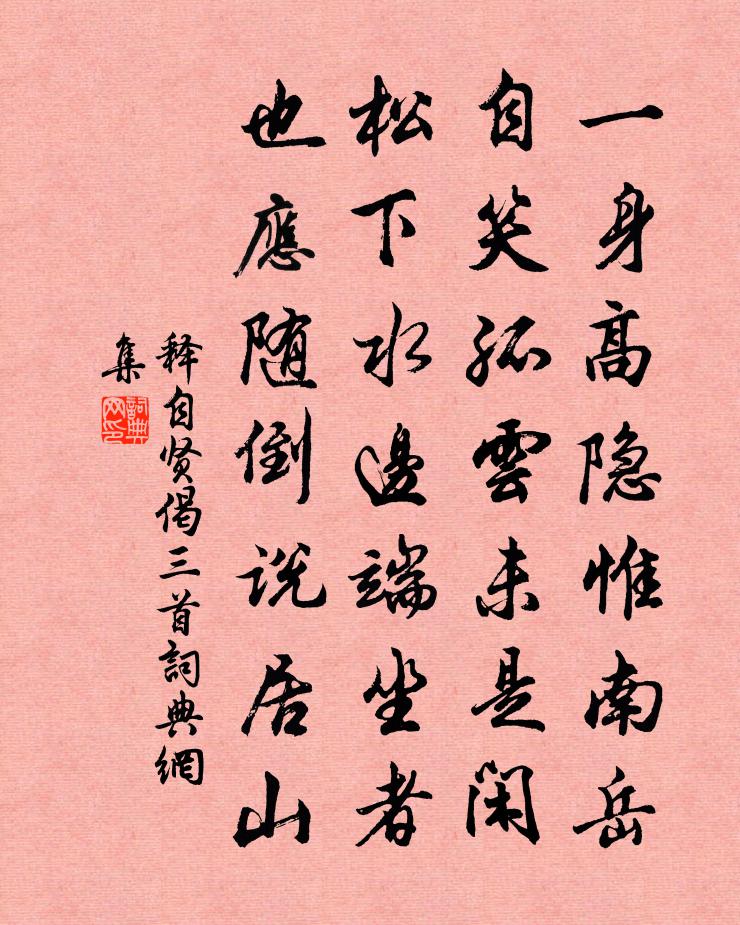 一身高隐惟南岳
自笑孤雲未是闲
松下水邊端坐者
也應随倒说居山
释自贤偈三首詞典網
集
詞典
网印